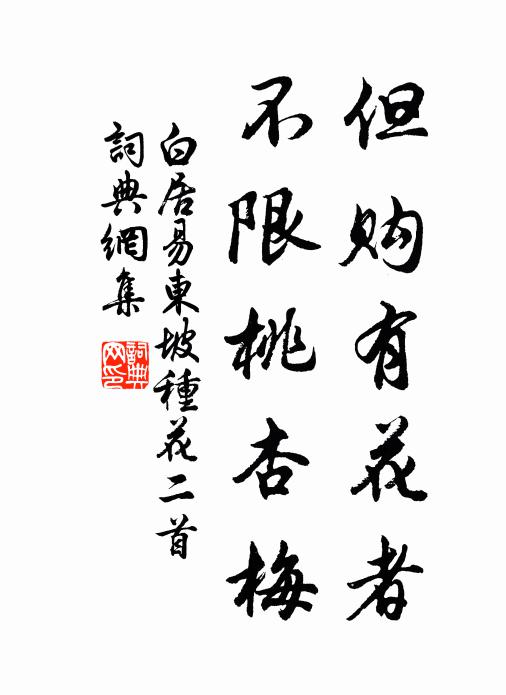 但购有花者
不限桃杏梅
白居易東坡種花二首
詞典網集
詞典网印